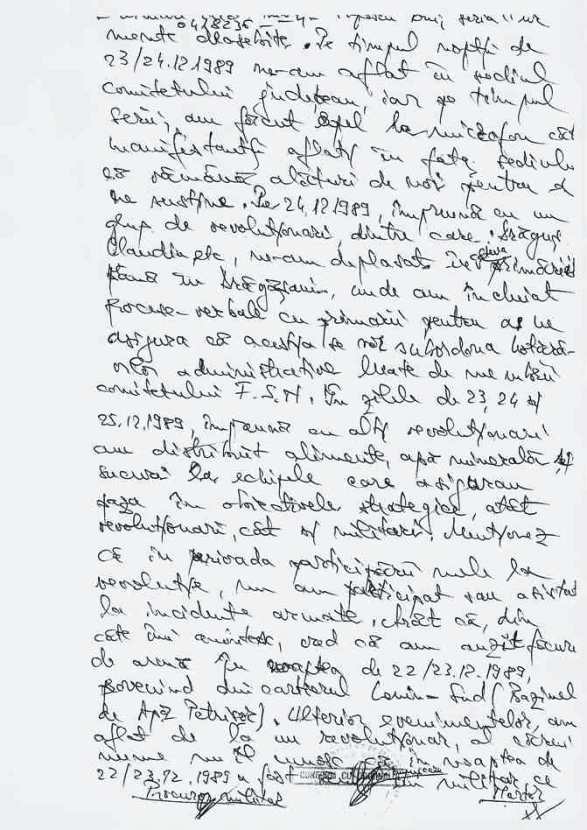 0448236
mente deosebite. Pe timpul nopții de
23/24.12.1989 ne-am aflat în sediul
Comitetului județean, iar pe timpul
serii, am făcut apel la microfon cât
manifestanții aflați în fața sediului
să rămână alături de noi pentru a
ne susține. Pe 24.12.1989, împreună cu un
grup de revoluționari, dintre care
Claudia etc, ne-am deplasat
până în Drăgășani, unde am încheiat
procese-verbale cu primarii pentru a ne
asigura că aceștia se vor subordona hotărâ-
rilor administrative luate de membrii
comitetului F.S.N. În zilele de 23, 24 și
25.12.1989, împreună cu alți revoluționari
am distribuit alimente, apă minerală și
sucuri la echipele care asigurau
paza în obiectivele strategice, atât
revoluționari, cât și militari. Menționez
că în perioada participării mele la
revoluție, nu am participat sau asistat
la incidente armate, decât că, din
câte îmi amintesc, cred că am auzit focuri
de armă în noaptea de 22/23.12.1989,
provenind din cartierul Ostroveni Sud (Bazinul
de Apă). Ulterior evenimentelor, am
aflat de la un revoluționar, al cărui
nume nu îl cunosc că în noaptea de
22/23.12.1989 a fost un militar ce
Procuror militar Martor